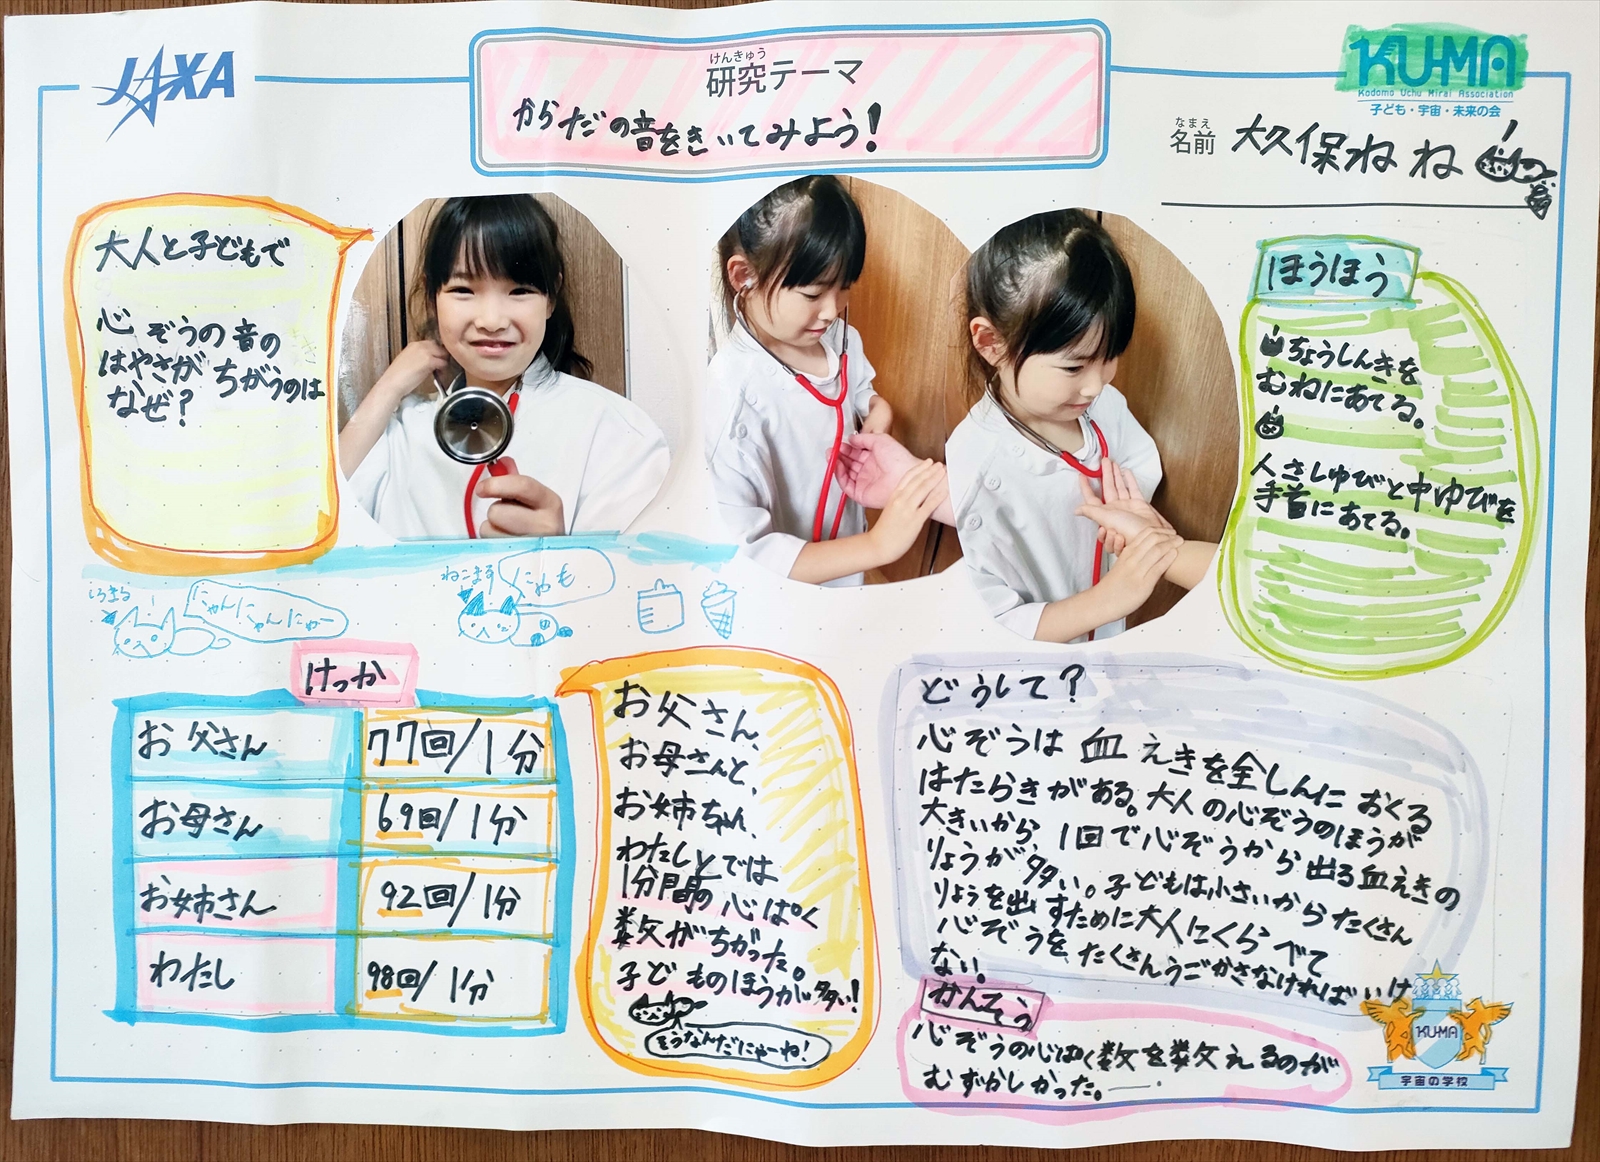 JAXA
けんきゅう
研究テーマ
からだの音をきいてみよう!
KU-MA
Kodomo Uchu Mirai Association
子ども・宇宙・未来の会
なまえ
名前 大久保ねね
大人と子どもで
心ぞうの音の
はやさがちがうのは
なぜ?
ほうほう
ちょうしんきを
むねにあてる。
人さしゆびと中ゆびを
手首にあてる。
しろまる
にゃんにゃんにゃー
ねこまる
にゃも
けっか
お父さん 77回/1分
お母さん 69回/1分
お姉さん 92回/1分
わたし 98回/1分
お父さん、
お母さんと、
お姉ちゃん、
わたしとでは
1分間の心ぱく
数がちがった。
子どものほうが多い!
そうなんだにゃーね!
どうして?
心ぞうは血えきを全しんにおくる
はたらきがある。大人の心ぞうのほうが
大きいから、1回で心ぞうから出る血えきの
りょうが多い。子どもは小さいからたくさん
りょうを出すために大人にくらべて
心ぞうをたくさんうごかさなければいけ
ない。
かんそう
心ぞうの心ぱく数を数えるのが
むずかしかった。
KU-MA
宇宙の学校